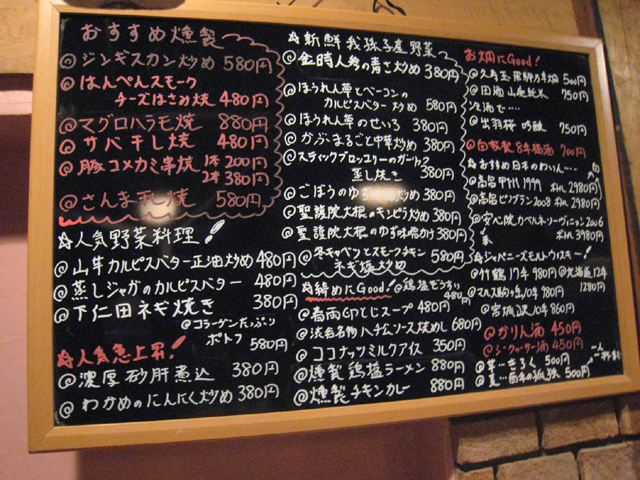 おすすめ燻製
@ジンギスカン炒め 580円
@はんぺんスモーク
チーズはさみ焼 480円
@マグロハラモ焼 880円
@サバ干し焼 480円
@豚コメカミ串焼 1本200円
2本380円
@さんま干し焼 580円
☆人気野菜料理!
@山芋カルピスバター正油炒め 480円
@蒸しジャがのカルピスバター 480円
@下仁田ネギ焼き 380円
@コラーゲンたっぷり
ポトフ 580円
☆人気急上昇!
@濃厚砂肝煮込 380円
@わかめのにんにく炒め 380円
☆新鮮我孫子産野菜
@金時人参の青さ炒め 380円
@ほうれん草とベーコンの
カルピスバター炒め 580円
@ほうれん草のせいろ 380円
@かぶまるごと中華炒め 380円
@スティックブロッコリーのガーリック
蒸し焼き 380円
@ごぼうのゆず 炒め 380円
@聖護院大根のキンピラ炒め 380円
@聖護院大根のゆず味噌かけ 380円
@冬キャベツとスモークチキン
ネギ塩炒め
☆締めにGood! @鶏塩ぞうすい
480円
@春雨GPTじスープ 480円
@浜名名物ハチムソース焼めし 680円
@ココナッツミルクアイス 350円
@燻製鶏塩ラーメン 880円
@燻製チキンカレー 880円
お燗にGood!
@久寿玉 500円
@田酒山廃純米 750円
冷酒で…
@出羽桜 吟醸 750円
@白 製8年梅酒 700円
☆おすすめ日本のわいん…
@高畠甲州1999 ボトル2980円
@高畠ピノブラン2008 ボトル2980円
@安心院カベルネソーヴィニヨン2006
赤 ボトル3980円
☆ジャパニーズモルトウィスキー!
@竹鶴17年 980円 @北海道12年
1280円
@マルス駒ヶ岳10年 980円
@宮城峡10年 860円
@かりん酒 450円
@ジークヮーサー酒 450円
@芋…きろく 500円
@麦…百年の孤独 500円